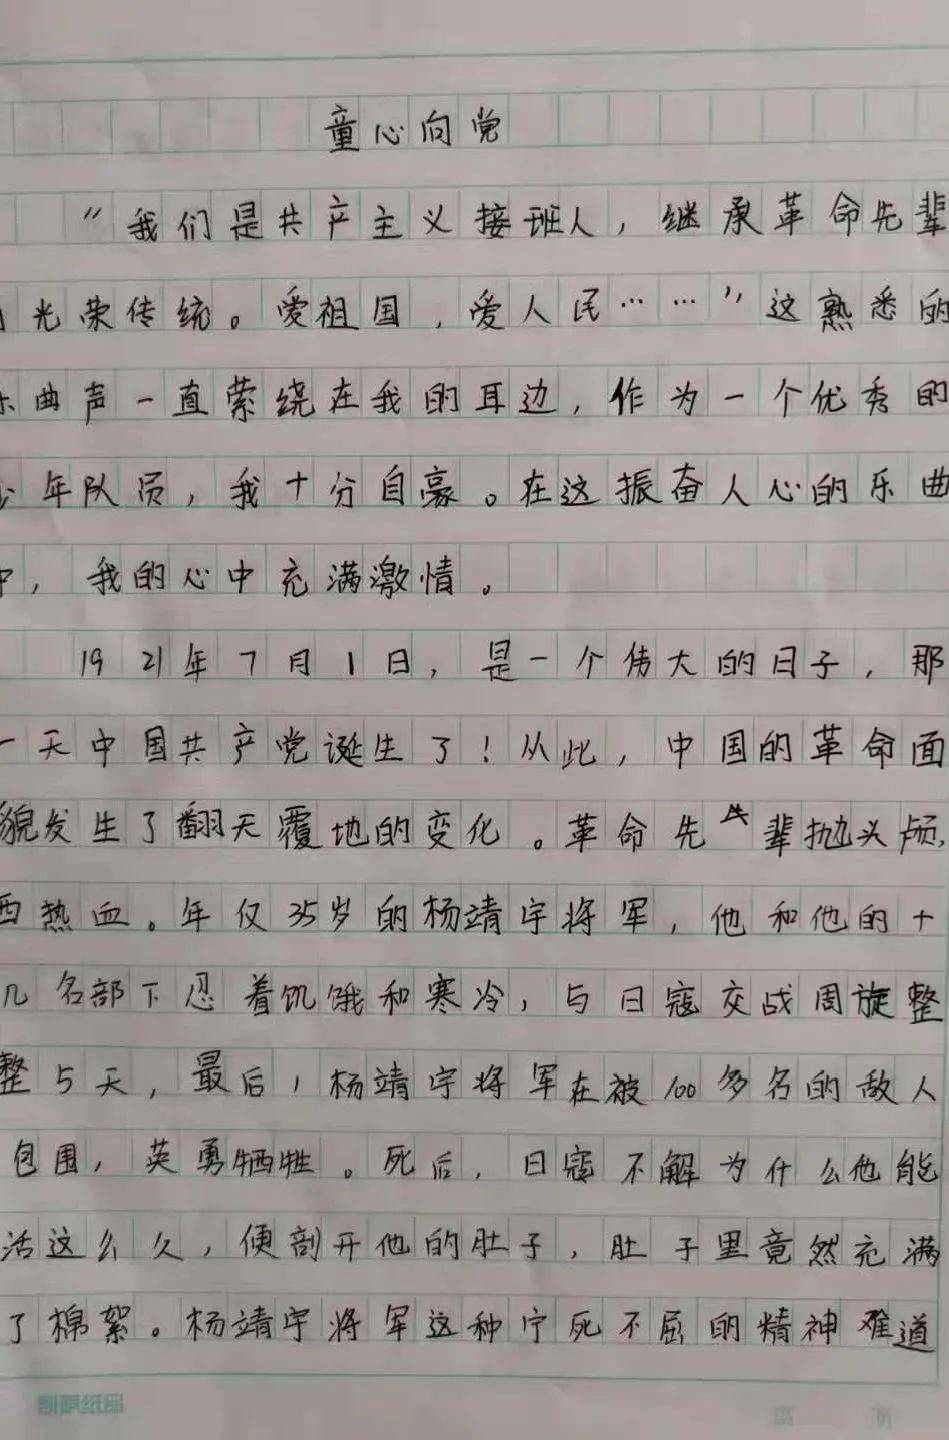 童心向党
“我们是共产主义接班人，继承革命先辈
光荣传统。爱祖国，爱人民……”这熟悉的
乐曲声一直萦绕在我的耳边，作为一个优秀的
少年队员，我十分自豪。在这振奋人心的乐曲
中，我的心中充满激情。
1921年7月1日，是一个伟大的日子，那
一天中国共产党诞生了！从此，中国的革命面
貌发生了翻天覆地的变化。革命先辈抛头颅，
洒热血。年仅35岁的杨靖宇将军，他和他的十
几名部下忍着饥饿和寒冷，与日寇交战周旋整
整5天，最后，杨靖宇将军在被100多名的敌人
包围，英勇牺牲。死后，日寇不解为什么他能
活这么久，便剖开他的肚子，肚子里竟然充满
了棉絮。杨靖宇将军这种宁死不屈的精神难道